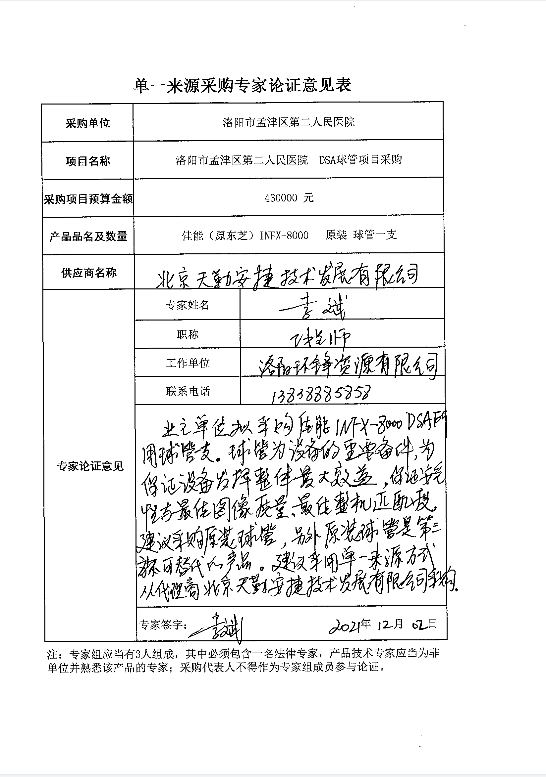 单一来源采购专家论证意见表
采购单位 洛阳市孟津区第二人民医院
项目名称 洛阳市孟津区第二人民医院 DSA球管项目采购
采购项目预算金额 430000 元
产品品名及数量 佳能(原东芝)INFX-8000 原装 球管一支
供应商名称 北京天勤安捷技术发展有限公司
专家姓名 李斌
职称 工程师
工作单位 洛阳环锋资源有限公司
联系电话 13838885858
专家论证意见
业主单位拟采购佳能INFX-8000 DSA
用球管支。球管为设备的重要备件,为
保证设备发挥整体最大效益,保证安全
性与最佳图像质量、最佳整机匹配,
建议采购原装球管,另外原装球管是第三
可替代的产品。建议采用单一来源方式
从代理商北京天勤安捷技术发展有限公司采购.
专家签字: 李斌 2021年12月02日
注:专家组应当有3人组成,其中必须包含一名法律专家,产品技术专家应当为非
单位并熟悉该产品的专家;采购代表人不得作为专家组成员参与论证。